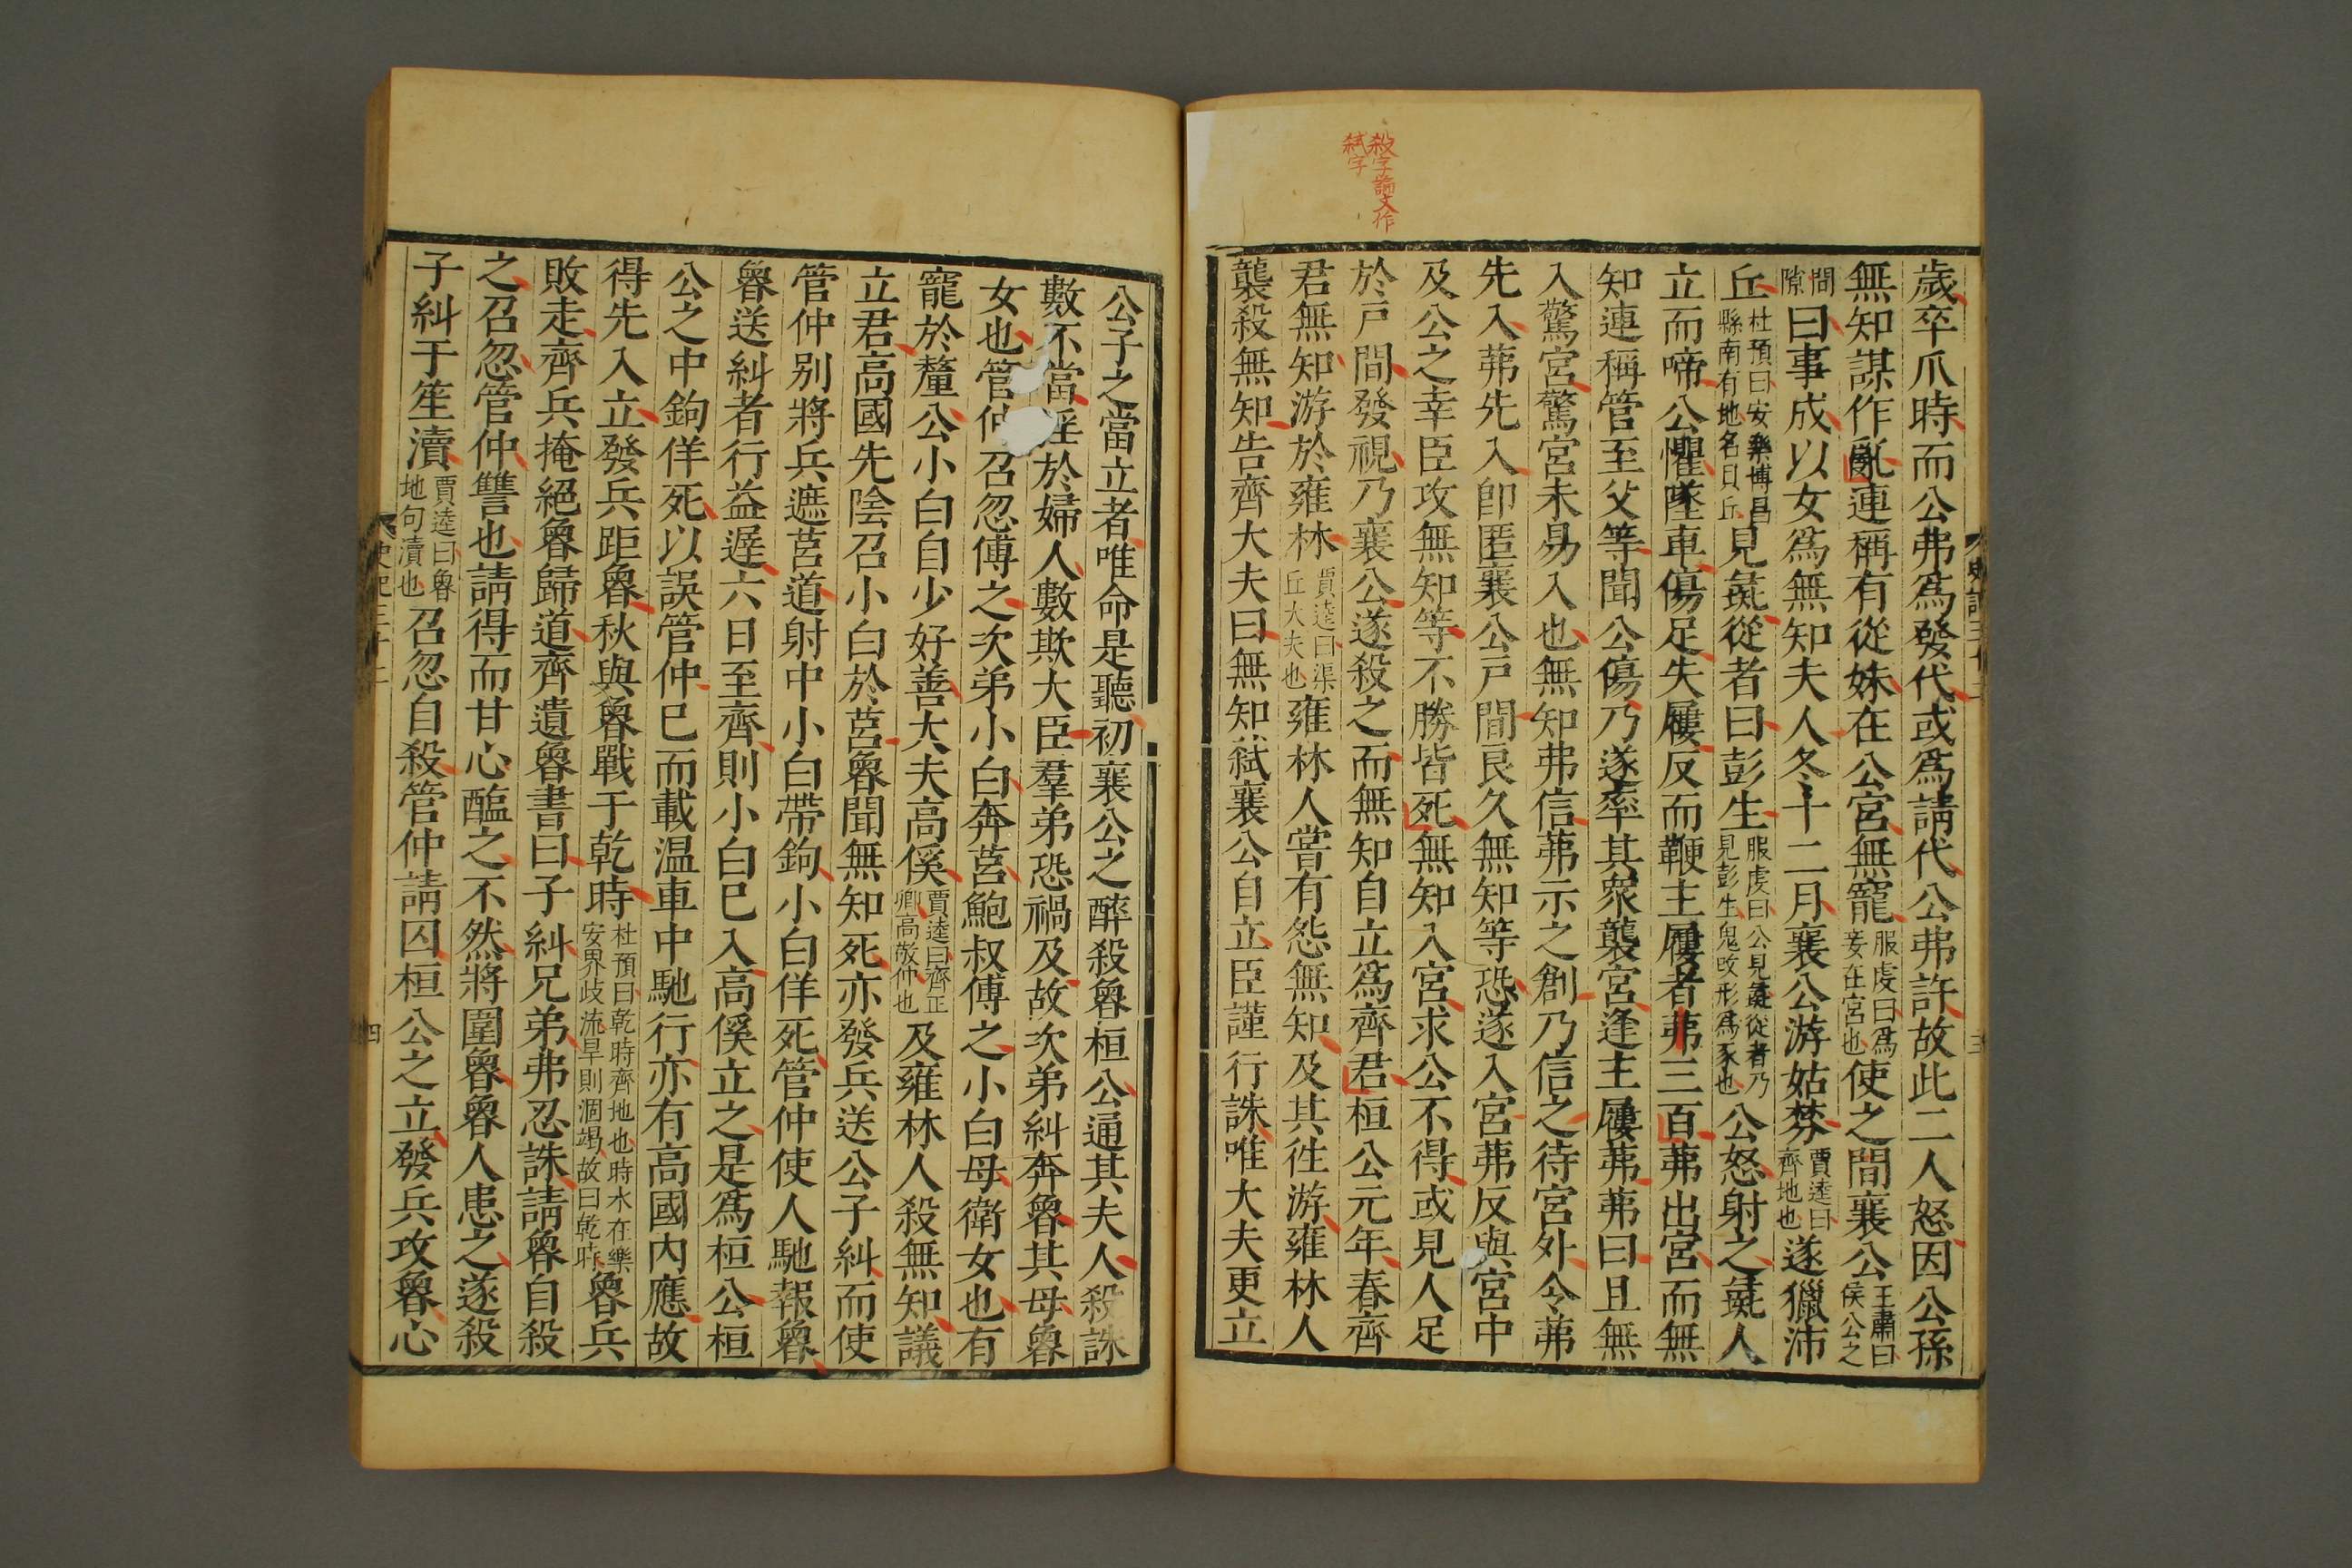 殺字諭文作
弑字
歲卒爪時而公弗爲發代或爲請代公弗許故此二人怒因公孫
無知謀作亂連稱有從妹在公宮無寵服虔曰爲妾在宮也使之間襄公王肅曰侯公之
間隙曰事成以女爲無知夫人冬十二月襄公游姑棼賈逵曰齊地也遂獵沛
丘杜預曰安樂博昌縣南有地名貝丘見彘從者曰彭生服虔曰公見彘從者乃見彭生鬼改形爲豕也公怒射之彘人
立而啼公懼墜車傷足失屨反而鞭主屨者茀三百茀出宮而無
知連稱管至父等聞公傷乃遂率其衆襲宮逢主屨茀茀曰且無
入驚宮驚宮未易入也無知弗信茀示之創乃信之待宮外令茀
先入茀先入卽匿襄公戶間良久無知等恐遂入宮茀反與宮中
及公之幸臣攻無知等不勝皆死無知入宮求公不得或見人足
於戶間發視乃襄公遂殺之而無知自立爲齊君桓公元年春齊
君無知游於雍林賈逵曰渠丘大夫也雍林人嘗有怨無知及其往游雍林人
襲殺無知告齊大夫曰無知弑襄公自立臣謹行誅唯大夫更立
公子之當立者唯命是聽初襄公之醉殺魯桓公通其夫人殺誅
數不當淫於婦人數欺大臣羣弟恐禍及故次弟糾奔魯其母魯
女也管仲召忽傅之次弟小白奔莒鮑叔傅之小白母衛女也有
寵於釐公小白自少好善大夫高傒賈逵曰齊正卿高敬仲也及雍林人殺無知議
立君高國先陰召小白於莒魯聞無知死亦發兵送公子糾而使
管仲别將兵遮莒道射中小白帶鉤小白佯死管仲使人馳報魯
魯送糾者行益遲六日至齊則小白已入高傒立之是爲桓公桓
公之中鉤佯死以誤管仲已而載温車中馳行亦有高國內應故
得先入立發兵距魯秋與魯戰于乾時杜預曰乾時齊地也時水在樂安界歧流旱則涸竭故曰乾時魯兵
敗走齊兵掩絕魯歸道齊遺魯書曰子糾兄弟弗忍誅請魯自殺
之召忽管仲讐也請得而甘心醢之不然將圍魯魯人患之遂殺
子糾于笙瀆賈逵曰魯地句瀆也召忽自殺管仲請囚桓公之立發兵攻魯心
史記三十二
四